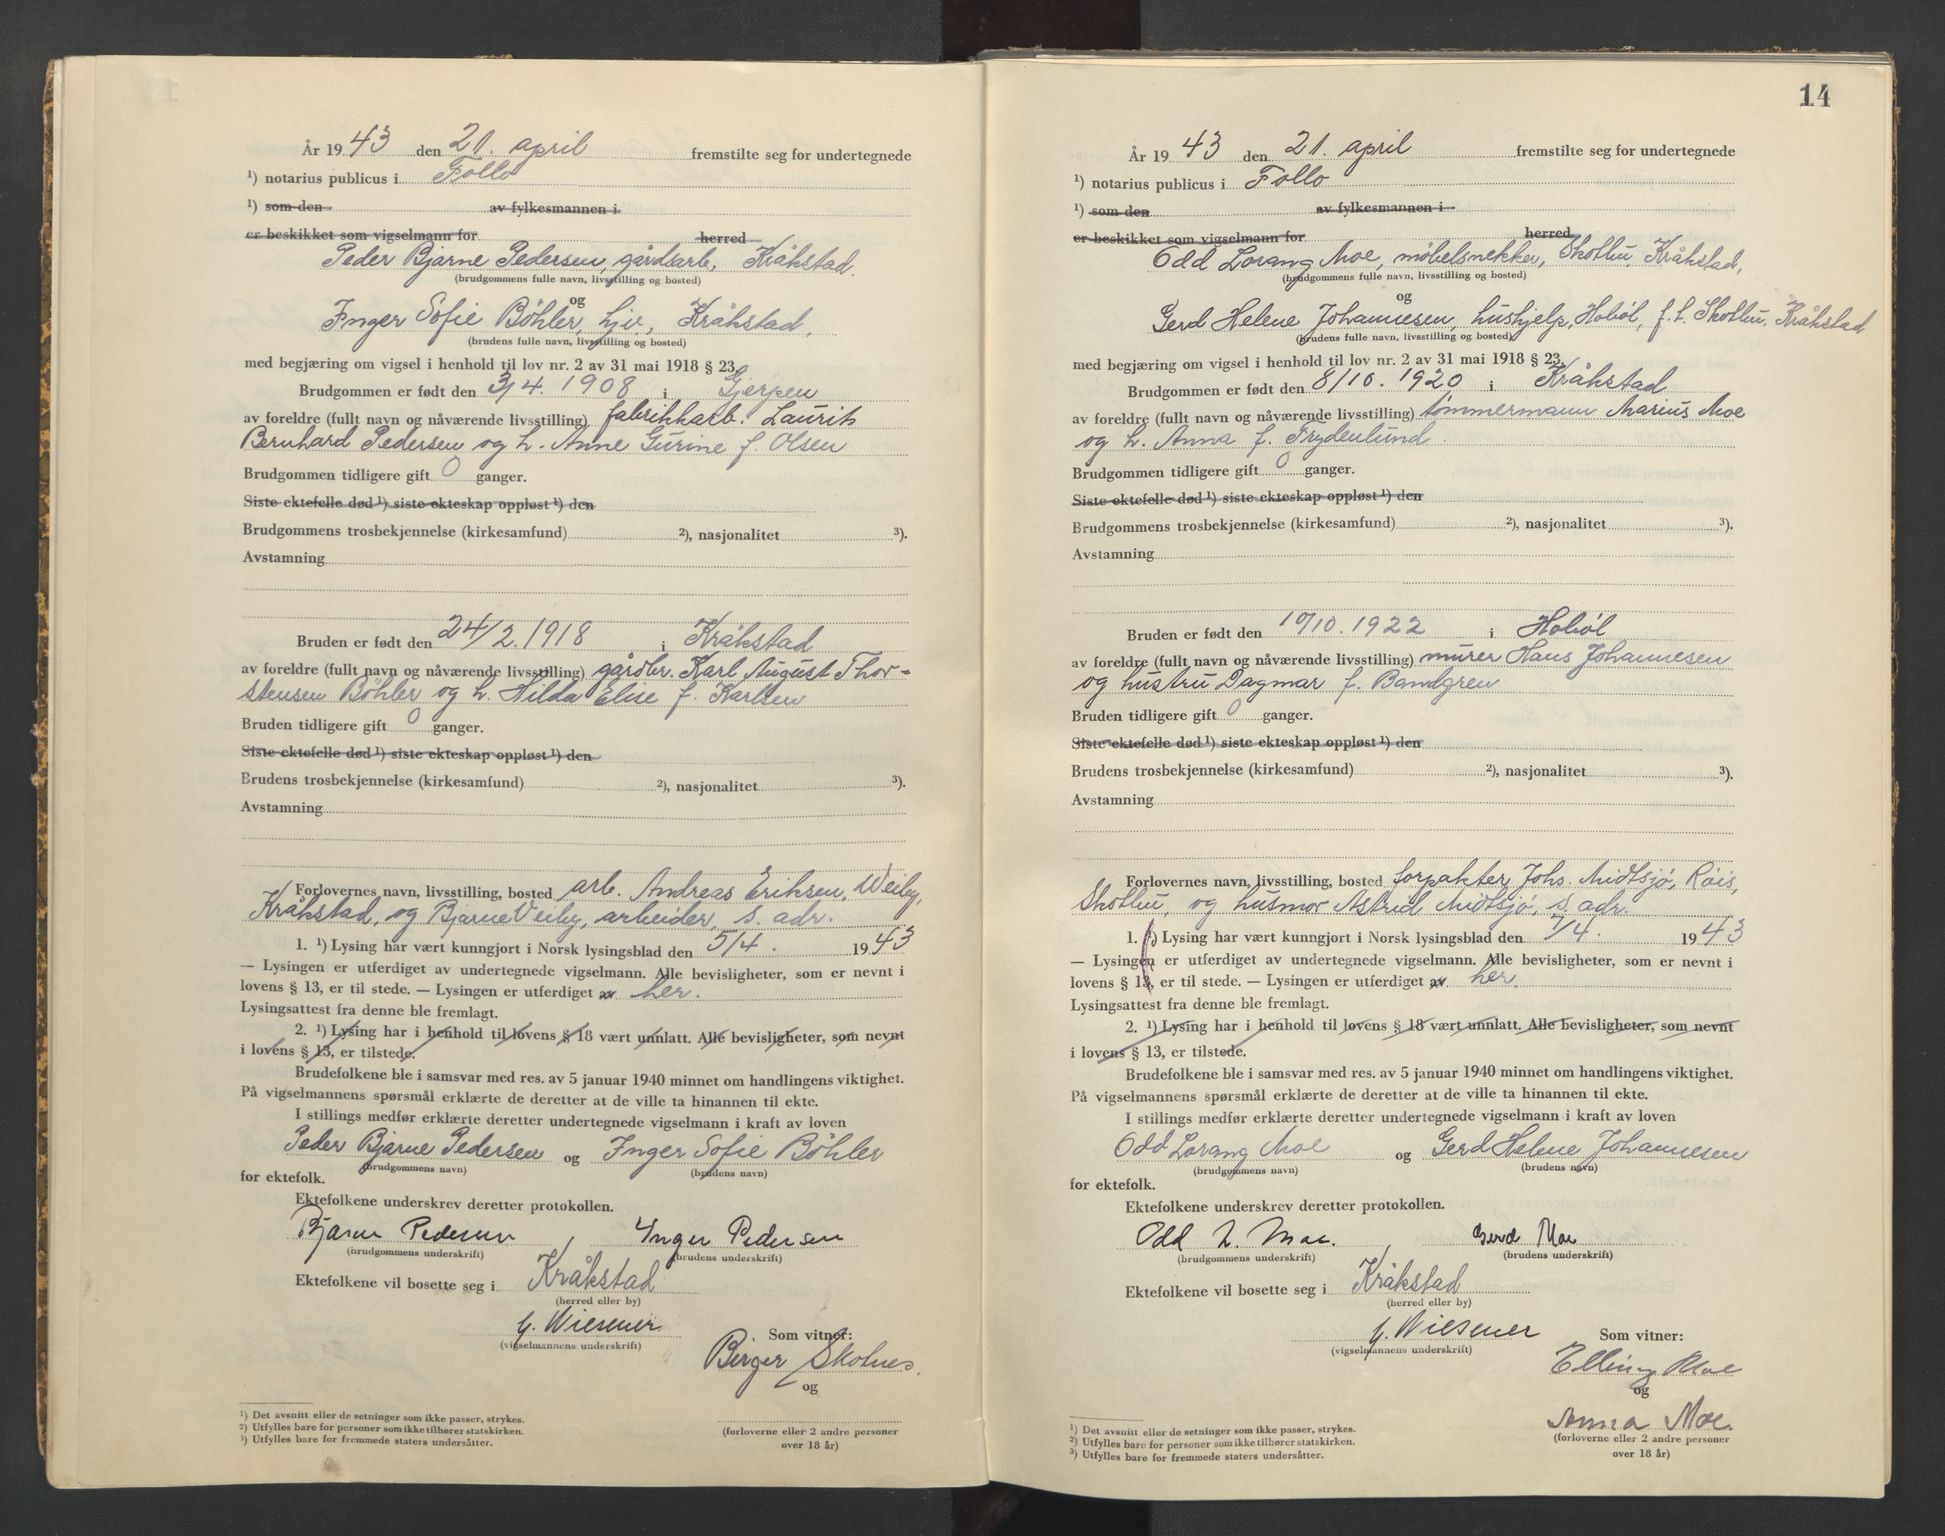 År 19 43 den 21. april fremstilte seg for undertegnede
¹) notarius publicus i Follo
¹) som den av fylkesmannen i
er beskikket som vigselmann for herred
Peder Bjarne Pedersen, gårdsarb, Kråkstad.
(brudgommens fulle navn, livsstilling og bosted)
og
Inger Sofie Bøhler, hjv., Kråkstad,
(brudens fulle navn, livsstilling og bosted)
med begjæring om vigsel i henhold til lov nr. 2 av 31 mai 1918 § 23.
Brudgommen er født den 3/4. 1908 i Gjerpen
av foreldre (fullt navn og nåværende livsstilling) fabrikkarb. Laurits
Bernhard Pedersen og h. Anne Gurine f. Olsen
Brudgommen tidligere gift 0 ganger.
Siste ektefelle død ¹) siste ekteskap oppløst ¹) den
Brudgommens trosbekjennelse (kirkesamfund) ²), nasjonalitet ³).
Avstamning
Bruden er født den 24/2. 1918 i Kråkstad
av foreldre (fullt navn og nåværende livsstilling) gårdbr. Karl August Thor-
stensen Bøhler og h. Hilda Elise f. Karlsen
Bruden tidligere gift 0 ganger.
Siste ektefelle død ¹) siste ekteskap oppløst ¹) den
Brudens trosbekjennelse (kirkesamfund) ²), nasjonalitet ³).
Avstamning
Forlovernes navn, livsstilling, bosted arb. Andreas Eriksen, Weiby,
Kråkstad, og Bjarne Veiby, arbeider, s. adr.
1. ¹) Lysing har vært kunngjort i Norsk lysingsblad den 5/4. 1943
— Lysingen er utferdiget av undertegnede vigselmann. Alle bevisligheter, som er nevnt i
lovens § 13, er til stede. — Lysingen er utferdiget av her.
Lysingsattest fra denne ble fremlagt.
2. ¹) Lysing har i henhold til lovens § 18 vært unnlatt. Alle bevisligheter, som nevnt
i lovens § 13, er tilstede.
Brudefolkene ble i samsvar med res. av 5 januar 1940 minnet om handlingens viktighet.
På vigselmannens spørsmål erklærte de deretter at de ville ta hinannen til ekte.
I stillings medfør erklærte deretter undertegnede vigselmann i kraft av loven
Peder Bjarne Pedersen og Inger Sofie Bøhler
(brudgommens navn) (brudens navn)
for ektefolk.
Ektefolkene underskrev deretter protokollen.
Bjarne Pedersen, Inger Pedersen
(brudgommens underskrift) (brudens underskrift)
Ektefolkene vil bosette seg i Kråkstad
(herred eller by)
G. Wiesener
(vigselmannens underskrift)
Som vitner:
Birger Skotnes.
og
(forloverne eller 2 andre personer
over 18 år)
¹) Det avsnitt eller de setninger som ikke passer, strykes.
²) Utfylles bare for personer som ikke tilhører statskirken.
³) Utfylles bare for fremmede staters undersåtter.
14
År 19 43 den 21. april fremstilte seg for undertegnede
¹) notarius publicus i Follo
¹) som den av fylkesmannen i
er beskikket som vigselmann for herred
Odd Lorang Moe, møbelsnekker, Skotbu, Kråkstad,
(brudgommens fulle navn, livsstilling og bosted)
og
Gerd Helene Johannesen, hushjelp, Hobøl, f.t. Skotbu, Kråkstad
(brudens fulle navn, livsstilling og bosted)
med begjæring om vigsel i henhold til lov nr. 2 av 31 mai 1918 § 23.
Brudgommen er født den 8/10. 1920 i Kråkstad
av foreldre (fullt navn og nåværende livsstilling) tømmermann Marius Moe
og h. Anna f. Frydenlund.
Brudgommen tidligere gift 0 ganger.
Siste ektefelle død ¹) siste ekteskap oppløst ¹) den
Brudgommens trosbekjennelse (kirkesamfund) ²), nasjonalitet ³).
Avstamning
Bruden er født den 10/10. 1922 i Hobøl
av foreldre (fullt navn og nåværende livsstilling) murer Hans Johannesen
og hustru Dagmar f. Bandgren
Bruden tidligere gift 0 ganger.
Siste ektefelle død ¹) siste ekteskap oppløst ¹) den
Brudens trosbekjennelse (kirkesamfund) ²), nasjonalitet ³).
Avstamning
Forlovernes navn, livsstilling, bosted forpakter Johs. Midtsjø, Røis,
Skotbu, og husmor Astrid Midtsjø, s. adr.
1. ¹) Lysing har vært kunngjort i Norsk lysingsblad den 7/4. 1943
— Lysingen er utferdiget av undertegnede vigselmann. Alle bevisligheter, som er nevnt i
lovens § 13, er til stede. — Lysingen er utferdiget av her.
Lysingsattest fra denne ble fremlagt.
2. ¹) Lysing har i henhold til lovens § 18 vært unnlatt. Alle bevisligheter, som nevnt
i lovens § 13, er tilstede.
Brudefolkene ble i samsvar med res. av 5 januar 1940 minnet om handlingens viktighet.
På vigselmannens spørsmål erklærte de deretter at de ville ta hinannen til ekte.
I stillings medfør erklærte deretter undertegnede vigselmann i kraft av loven
Odd Lorang Moe og Gerd Helene Johannesen
(brudgommens navn) (brudens navn)
for ektefolk.
Ektefolkene underskrev deretter protokollen.
Odd L. Moe. , Gerd Moe
(brudgommens underskrift) (brudens underskrift)
Ektefolkene vil bosette seg i Kråkstad
(herred eller by)
G. Wiesener
(vigselmannens underskrift)
Som vitner:
Elling Moe
og
Anna Moe.
(forloverne eller 2 andre personer
over 18 år)
¹) Det avsnitt eller de setninger som ikke passer, strykes.
²) Utfylles bare for personer som ikke tilhører statskirken.
³) Utfylles bare for fremmede staters undersåtter.